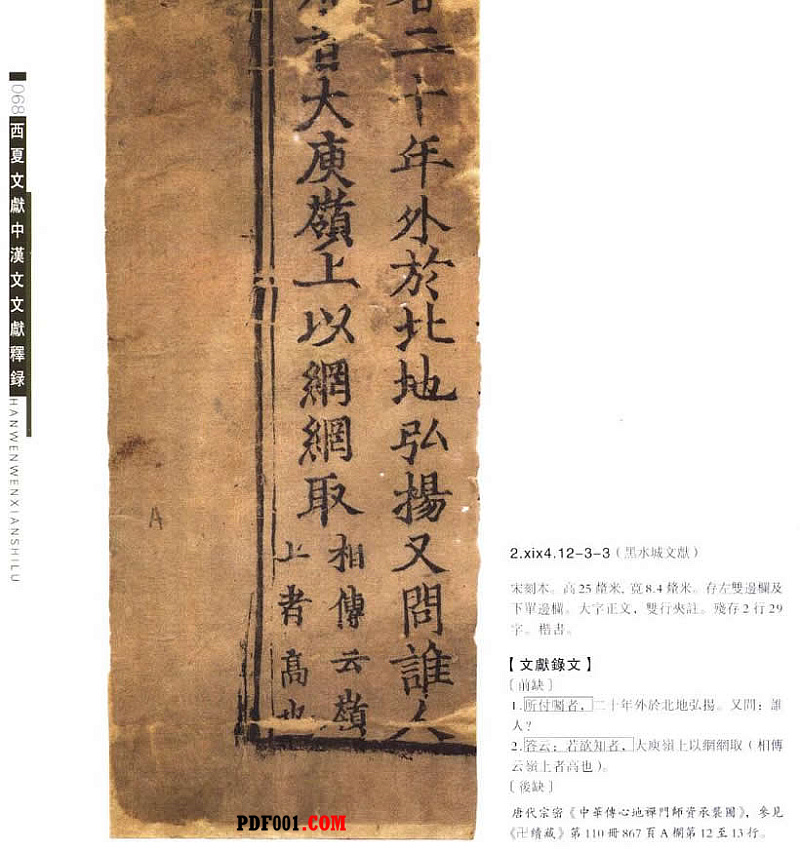 068
西夏文獻中漢文文獻釋録
HANWENWENXIANSHILU
者二十年外於北地弘揚又問誰人
者大庾嶺上以網網取
相傳云嶺
上者高也
A
2.xix4.12-3-3（黑水城文獻）
宋刻本。高25釐米，寬8.4釐米。存左雙邊欄及
下單邊欄。大字正文，雙行夾註。殘存2行29
字。楷書。
【文獻錄文】
〔前缺〕
1.所付囑者，二十年外於北地弘揚。又問：誰
人？
2.答云：若欲知者，大庾嶺上以網網取（相傳
云嶺上者高也）。
〔後缺〕
唐代宗密《中華傳心地禪門師資承襲圖》，參見
《卍續藏》第110冊867頁A欄第12至13行。
PDF001.COM